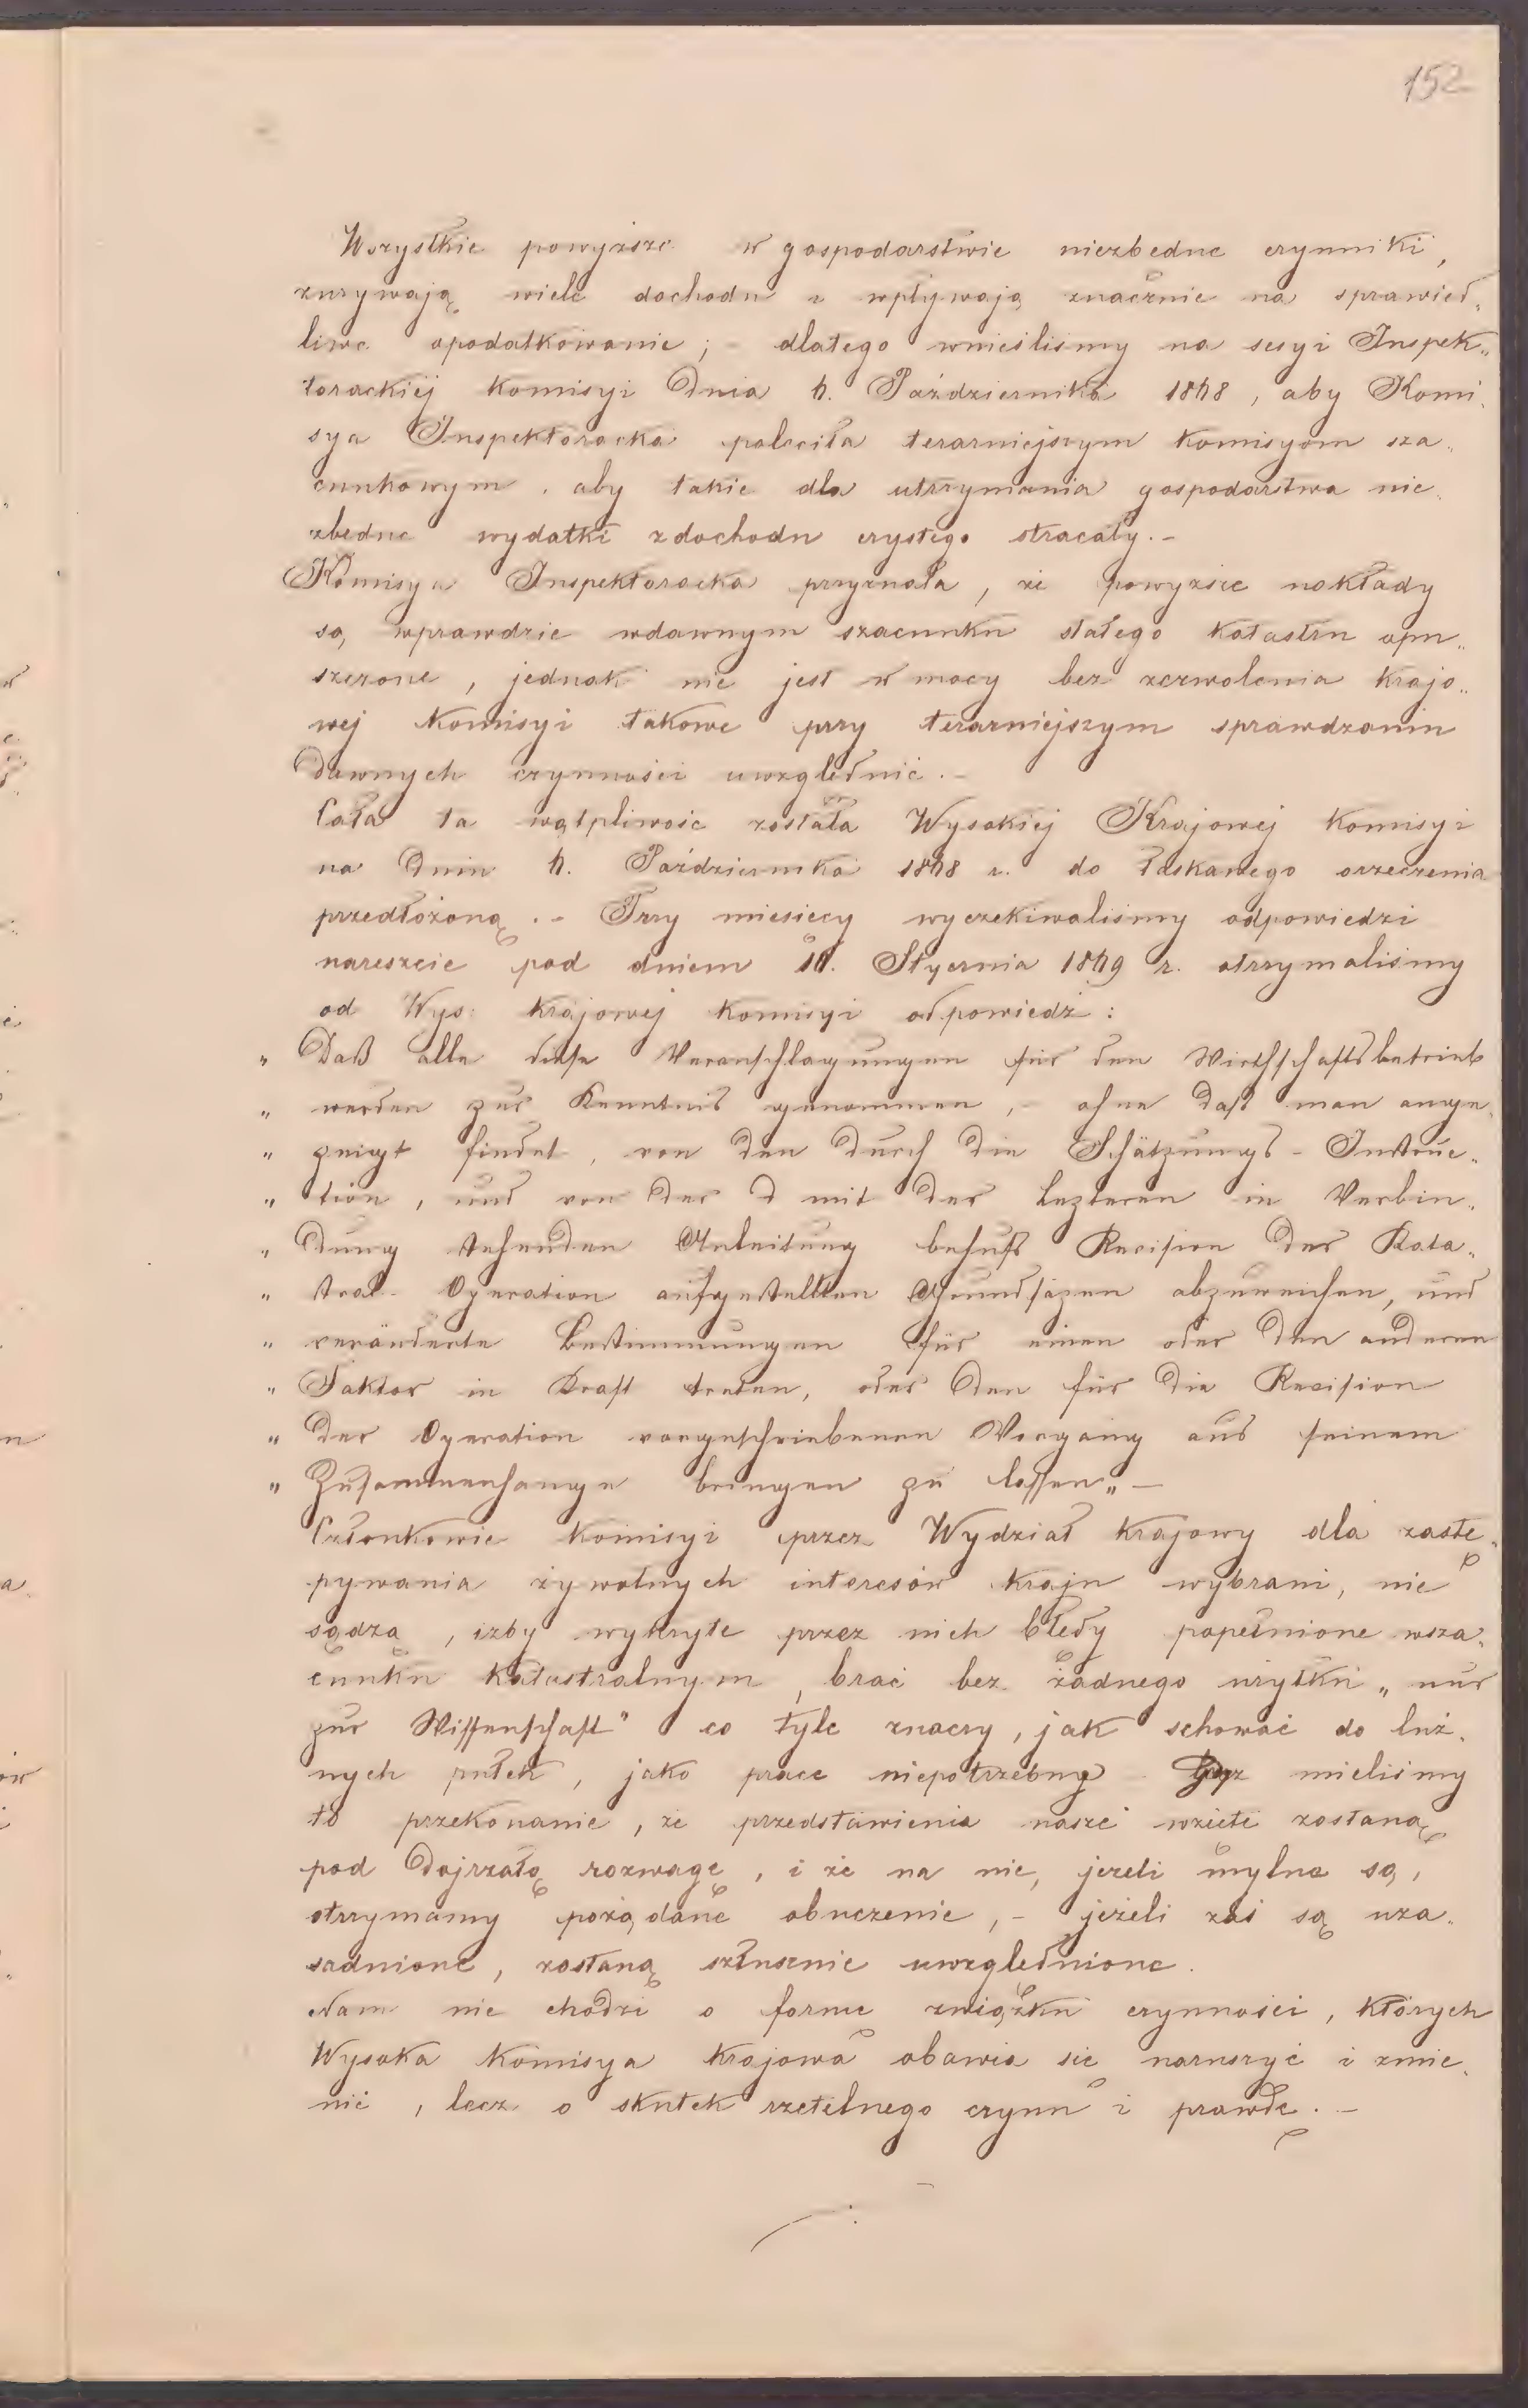 152
Wszystkie powyższe w gospodarstwie niezbedne czynniki,
zurywają wiele dochodu i wpływają znacznie na sprawied„
liwe opodatkowanie; – dlatego wnieśliśmy na sesyi Inspek„
torackiéj Komisyi dnia 7. Października 1878, aby Komi„
sya Inspektoracka poleciła terazniejszym komisyom sza„
cunkowym, aby takie dla utrzymania gospodarstwa nie„
zbedne wydatki z dochodu czystego stracały. –
Komisya Inspektoracka przyznała, że powyższe nakłady
są, wprawdzie wdawnym szacunku stałego katastru opu„
szczone, jednak nie jest w mocy bez zezwolenia krajo„
wej Komisyi takowe przy terazniejszym sprawdzaniu
dawnych czynności uwzglednić. –
Cała ta wątpliwość została Wysokiéj Krajowéj Komisyi
na dniu 7. Października 1878 r. do łaskawego orzeczenia
przedłożoną. – Trzy miesiecy wyczekiwaliśmy odpowiedzi
nareszcie pod dniem 17. Stycznia 1879 r. otrzymaliśmy
od Wys: Krajowej Komisyi odpowiedź:
„ Daß alle diese Veranschlagungen für den Wirthschaftsbetrieb
„ werden zur Kenntnis genommen, – ohne daß man ange„
„ zeigt findet, von den durch die Schätzungs-Instruc„
„ tion, und von der d mit der lezteren in Verbin„
„ dung stehenden Anleitung behufs Revision der Kata„
„ stral-Operation aufgestellten Grundsäzen abzuweichen, und
„ veränderte Bestimmungen für einen oder den anderen
„ Faktor in Kraft treten, oder den für die Revision
„ der Operation vorgeschriebenen Vorgang aus seinem
„ Zusammenhange bringen zu lassen„ –
Członkowie Komisyi przez Wydział krajowy dla zastę„
pywania żywotnych interesów kraju wybrani, nie
sądzą, izby wykryte przez nich błędy popełnione wsza„
cunku katastralnym, brać bez żadnego użytku „nur
zur Wissenschaft" co tyle znaczy, jak schować do luź„
nych pułek, jako prace niepotrzebną mieliśmy
to przekonanie, że przedstawienia nasze wzięte zostaną
pod dojrzałą rozwagę, i że na nie, jeżeli mylne są,
otrzymamy pożądane obuczenie, – jeżeli zaś są uza„
sadnione, zostaną szłusznie uwzglednione.
Nam nie chodzi o formę związku czynności, których
Wysoka Komisya krajowa obawia się naruszyć i zmie„
nić, lecz o skutek rzetelnego czynu i prawdę. –